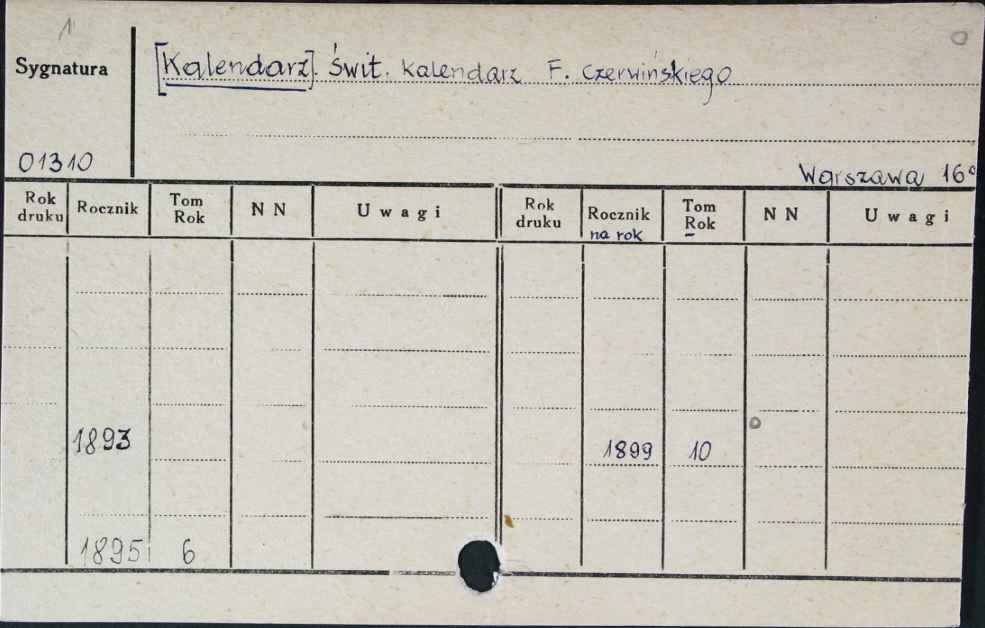 1
Sygnatura
[Kalendarz]. Świt. Kalendarz F. Czerwińskiego
01310
Warszawa 16°
Rok druku Rocznik Tom Rok N N Uwagi Rok druku Rocznik na rok Tom Rok N N Uwagi
1893 1899 10
1895 6